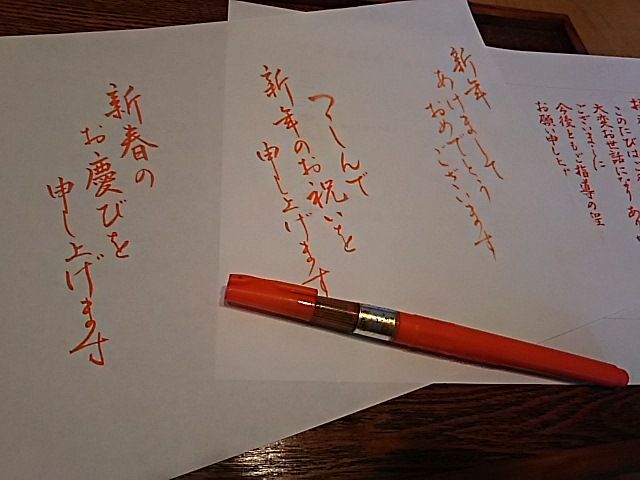 新春の
お慶びを
申し上げます
つつしんで
新年のお祝いを
申し上げます
新年
あけまして
おめでとう
ございます
このたびは
大変お世話になりあり
ございました
今後ともご指導の程
お願い申し上げ